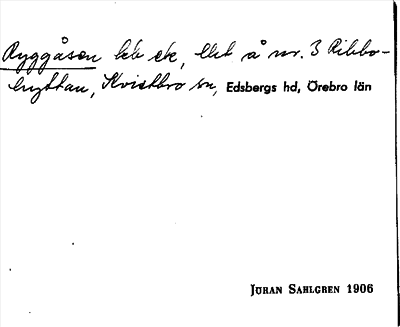 Ryggåsen
å nr. 3 Ribbo-
hyttan, Kvistbro sn, Edsbergs hd, Örebro län
JÖRAN SAHLGREN 1906